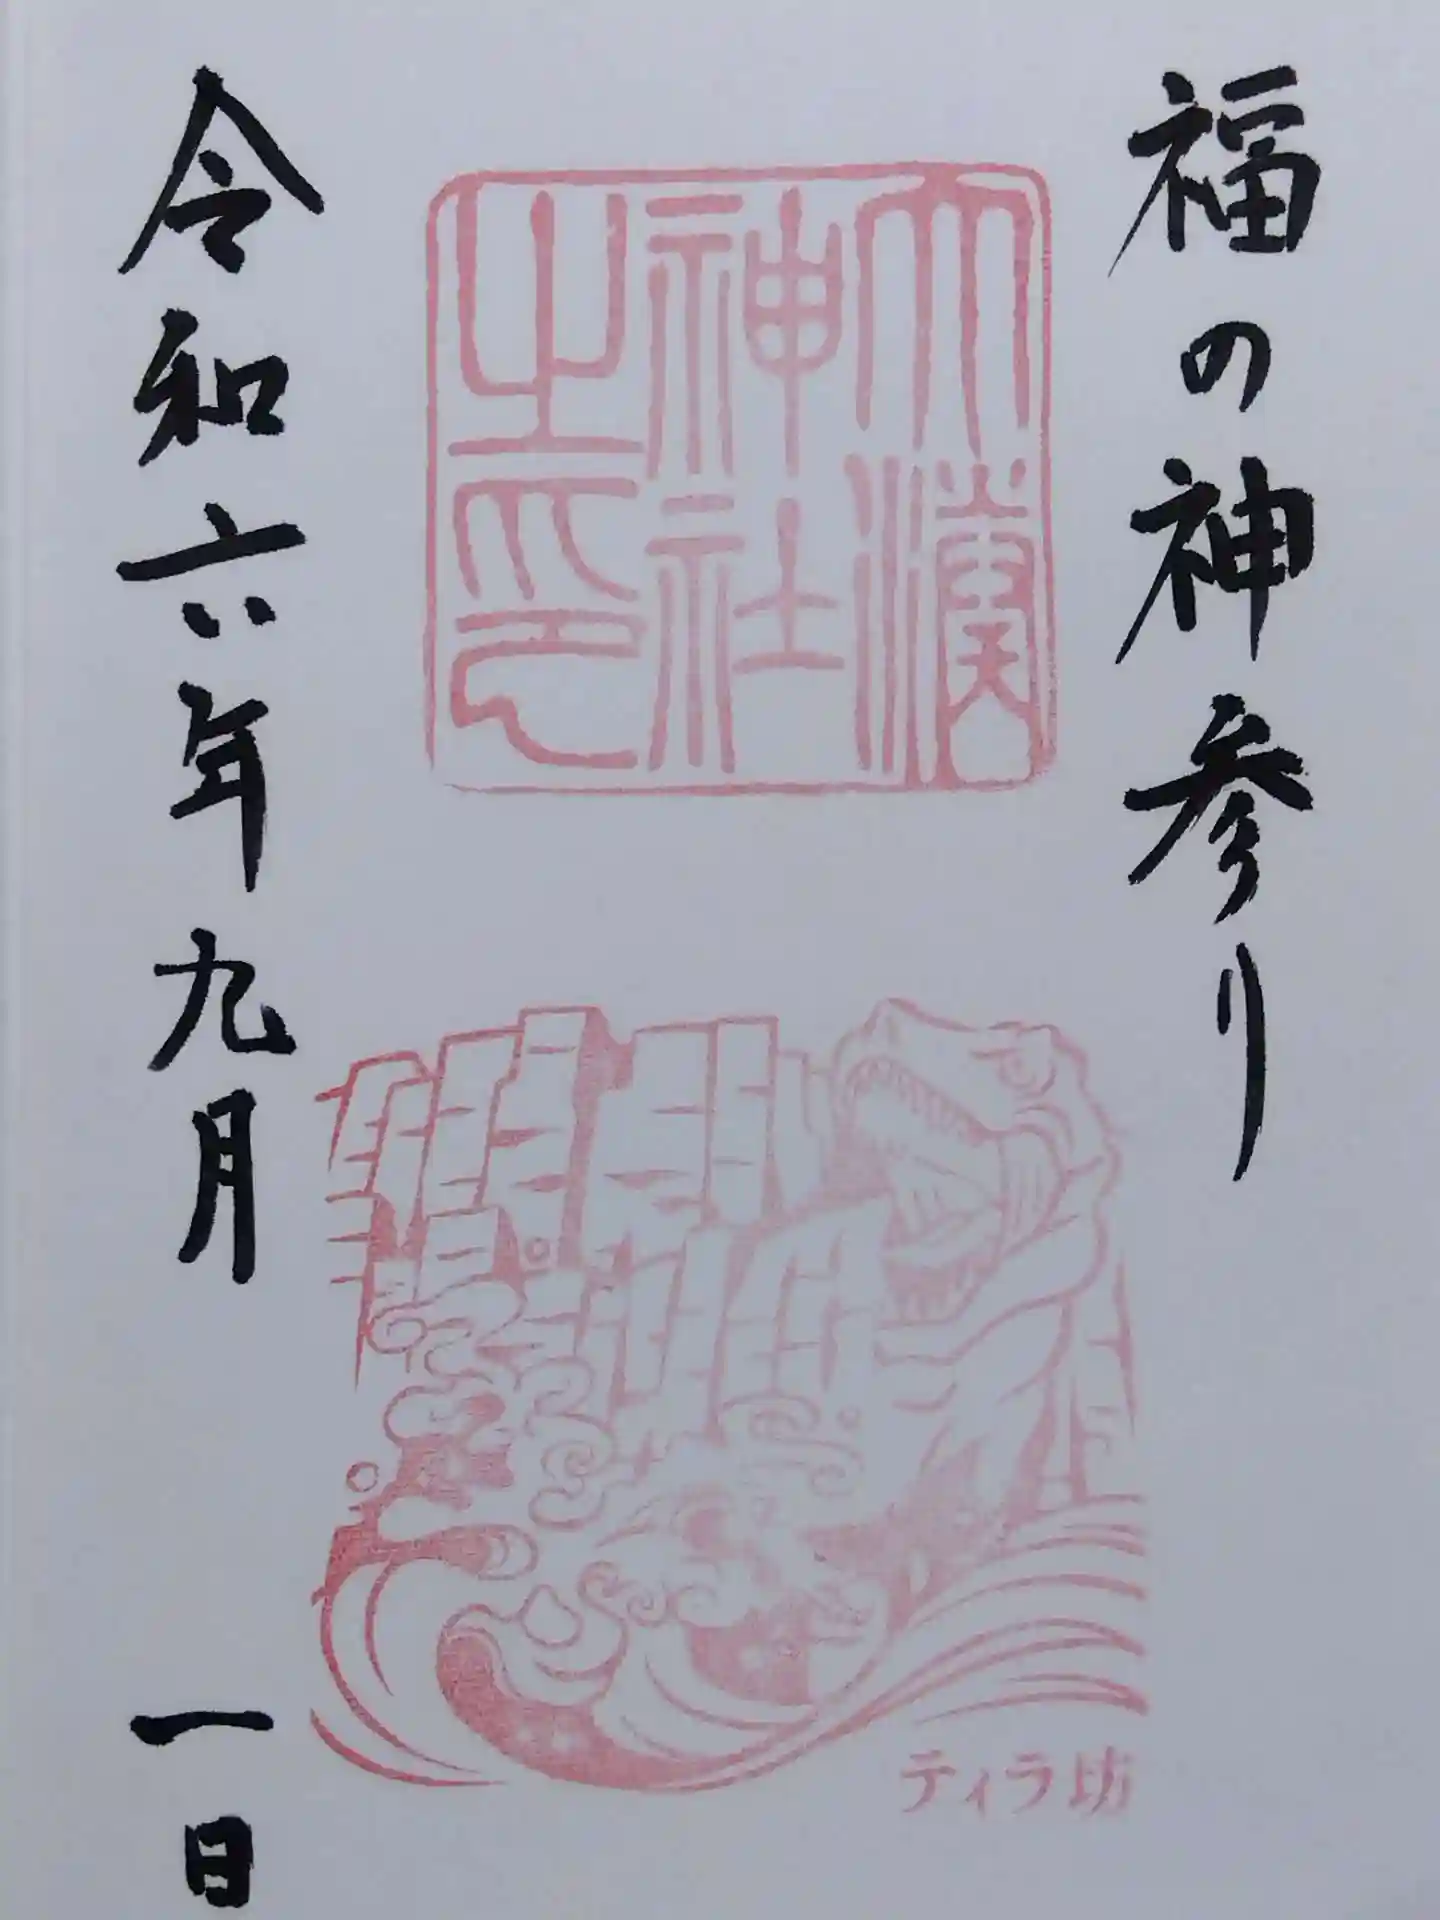 福の神参り
大湊
神社
之印
ティラ坊
令和六年九月
一日